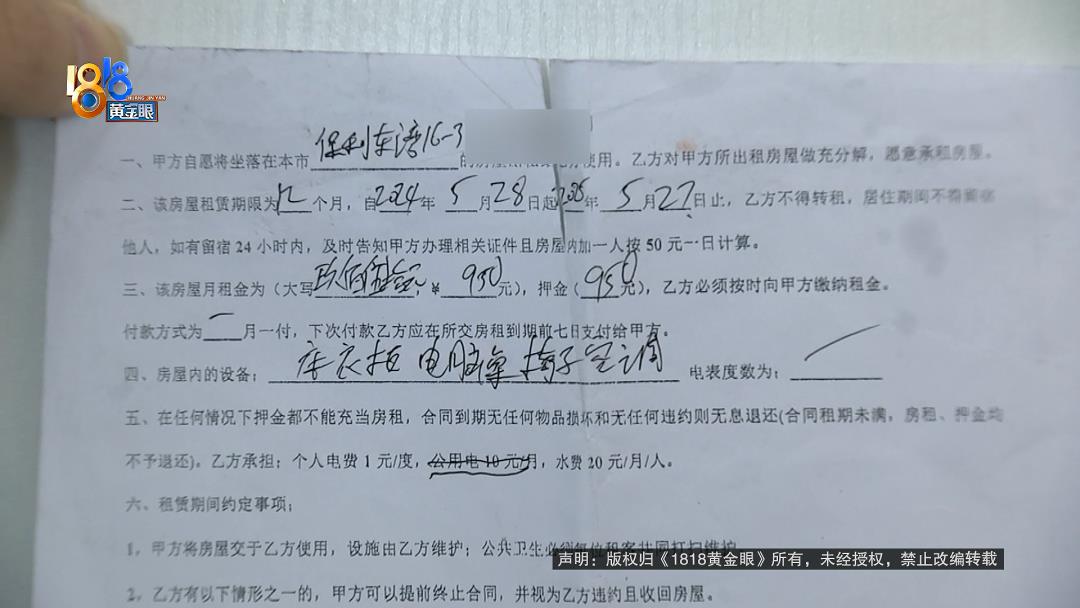 1818
HUANG JIN YAN
黄金眼
保利东湾16-3
一、甲方自愿将坐落在本市 使用。乙方对甲方所出租房屋做充分解,愿意承租房屋。
二、该房屋租赁期限为12个月,自2024年5月28日起2025年5月27日止,乙方不得转租,居住期间不得留宿
他人,如有留宿24小时内,及时告知甲方办理相关证件且房屋内加一人按50元一日计算。
三、该房屋月租金为(大写玖佰伍拾元,¥950元),押金(950元),乙方必须按时向甲方缴纳租金。
付款方式为一月一付,下次付款乙方应在所交房租到期前七日支付给甲方。
四、房屋内的设备:床衣柜 电脑桌 椅子空调 电表度数为:
五、在任何情况下押金都不能充当房租,合同到期无任何物品损坏和无任何违约则无息退还(合同租期未满,房租、押金均
不予退还)。乙方承担:个人电费1元/度,公用电10元/月,水费20元/月/人。
六、租赁期间约定事项:
1,甲方将房屋交于乙方使用,设施由乙方维护;公共卫生必须每位租客共同打扫维护
声明:版权归《1818黄金眼》所有,未经授权,禁止改编转载
2,乙方有以下情形之一的,甲方可以提前终止合同,并视为乙方违约且收回房屋。